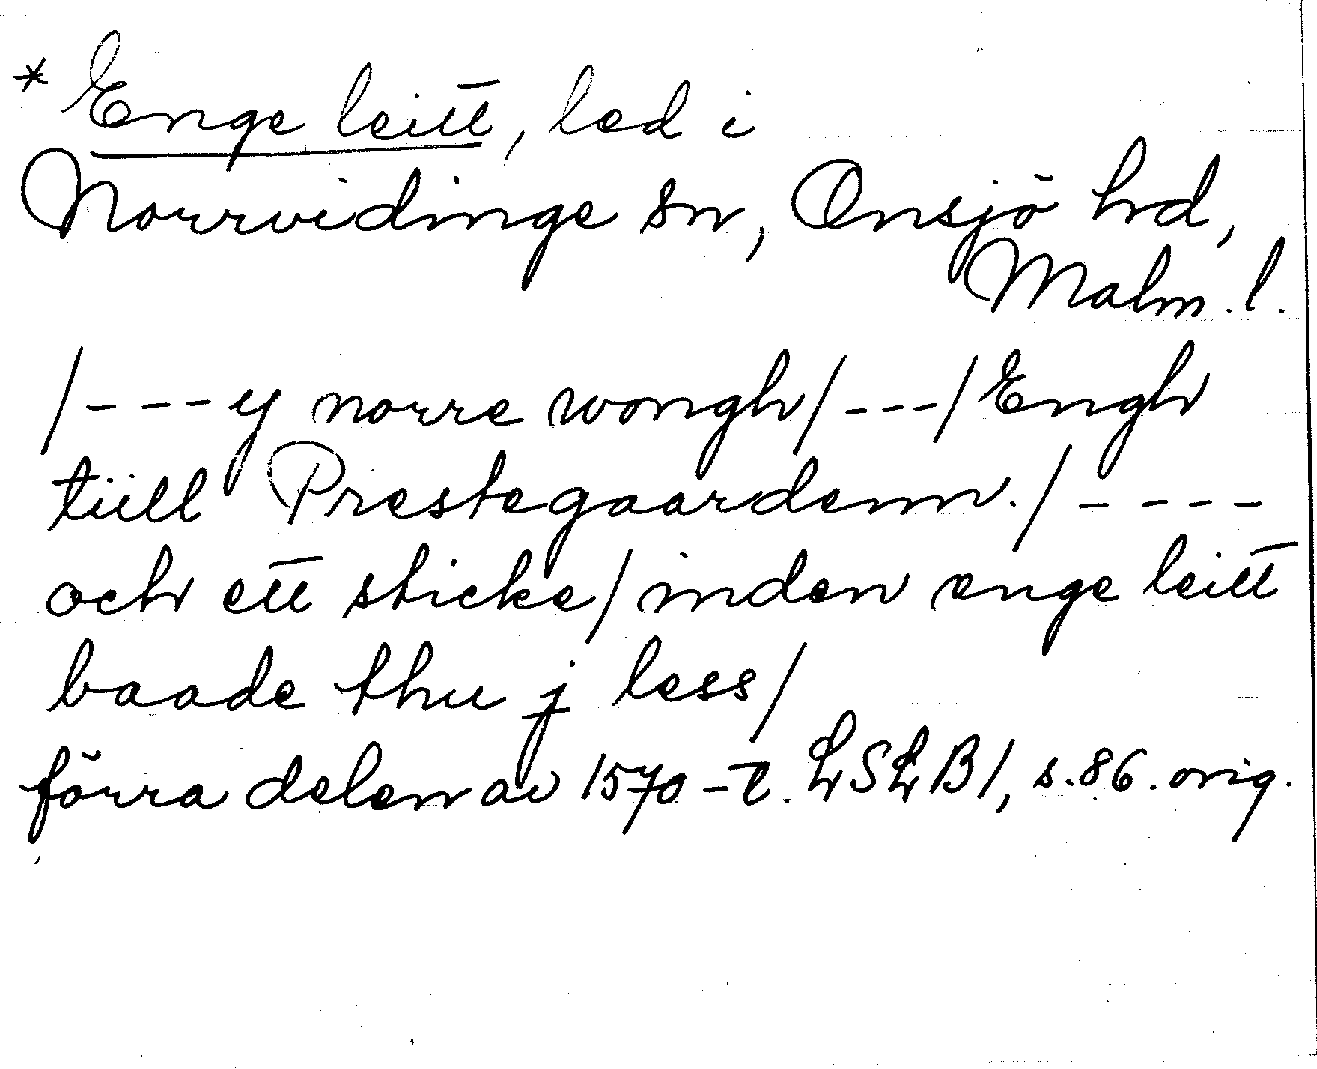 * Enge leitt, led i
Norrvidinge sn, Onsjö hrd,
Malm. l.
/---y norre wongh/---/Engh
tiill Prestegaardenn./----
och ett sticke/inden enge leitt
baade thu j less/
förra delen av 1570-t. LSLB1, s.86. orig.